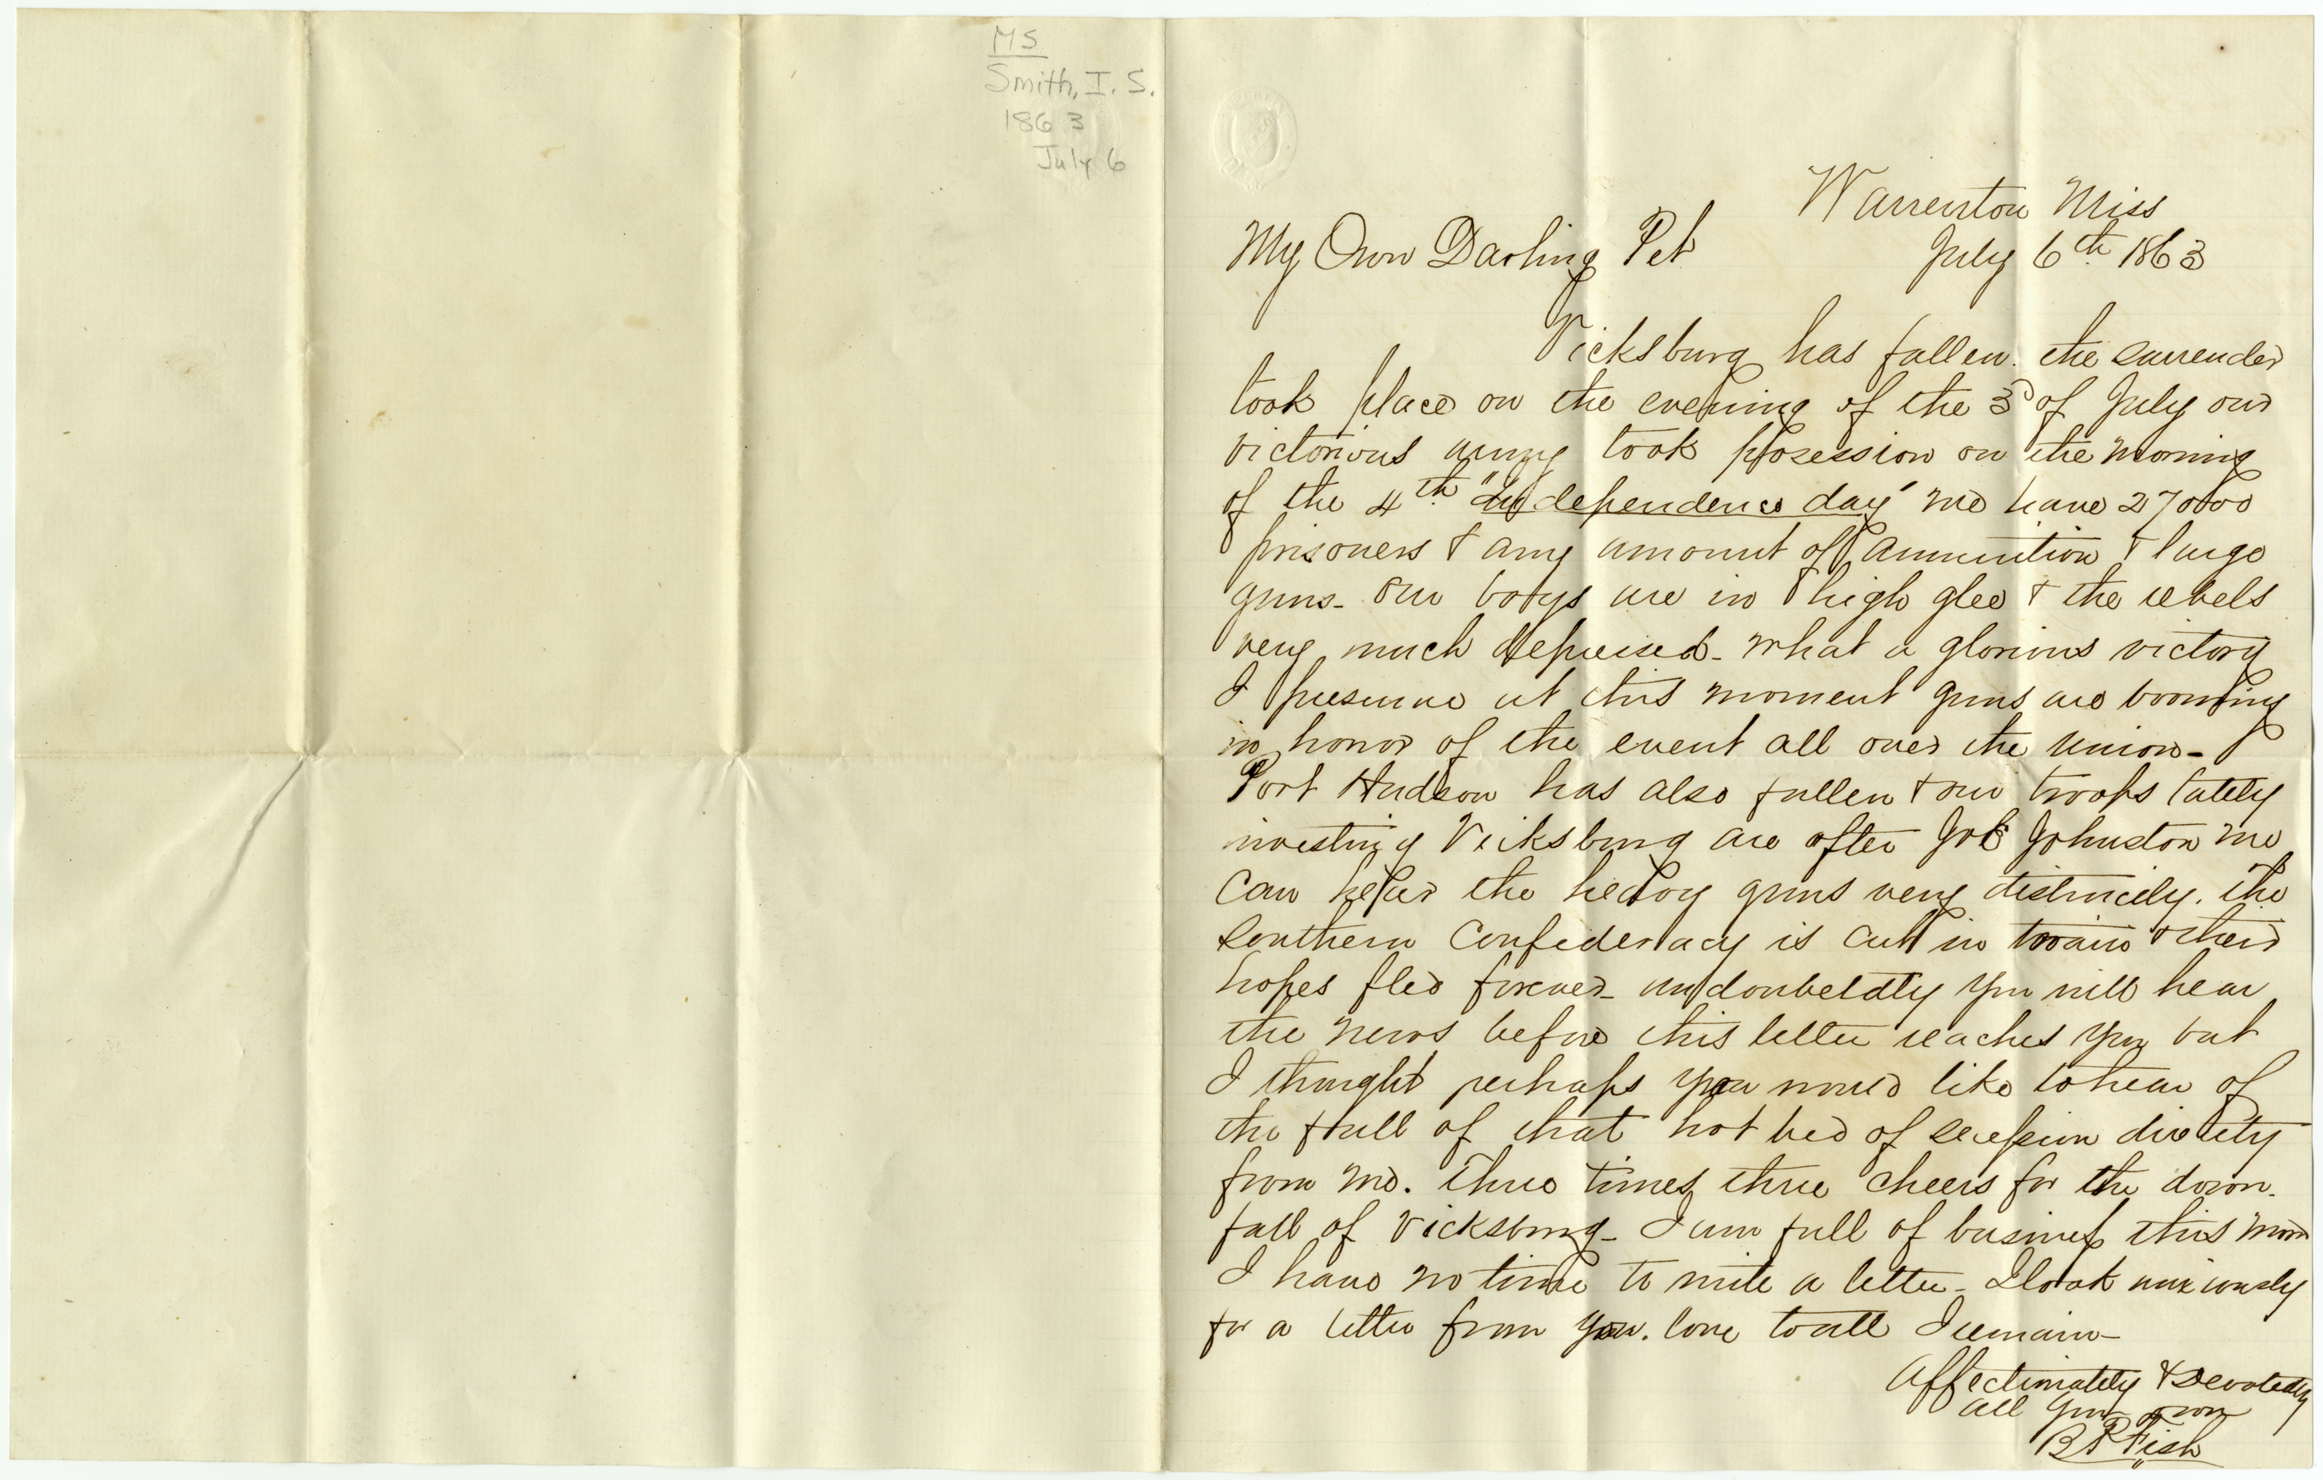 MS
Smith, I. S.
1863
July 6
Warrenton Miss
July 6th 1863
My Own Darling Pet
Vicksburg has fallen. the surrender
took place on the evening of the 3d of July our
victorious army took posession on the morning
of the 4th "Independence day" we have 27000
prisoners & any amount of ammunition & large
guns - our boys are in high glee & the rebels
very much depressed - what a glorious victory
I presume at this moment guns are booming
in honor of the event all over the union -
Port Hudson has also fallen & our troops lately
investing Vicksburg are after Joe Johnston we
can hear the heavy guns very distinctly. the
Southern Confederacy is cut in twain & their
hopes fled forever - undoubtedly you will hear
the news before this letter reaches you but
I thought perhaps you would like to hear of
the fall of that hot bed of secession directly
from me. Three times three cheers for the down-
fall of Vicksburg - I am full of business this morn
I have no time to write a letter - I look anxiously
for a letter from you. love to all I remain -
Affectionately & Devotedly
all your own
B P Fish